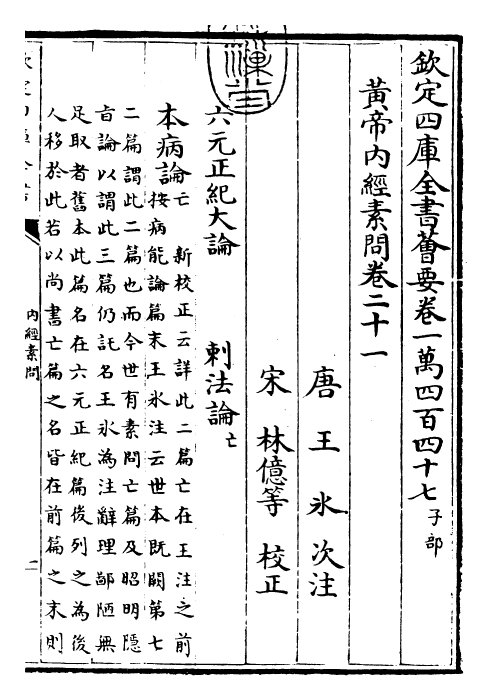 欽定四庫全書薈要卷一萬四百四十七子部
黃帝內經素問卷二十一
唐王氷次注
宋林億等校正
六元正紀大論 刺法論亡
本病論亡 新校正云詳此二篇亡在王注之前
按病能論篇末王氷注云世本既闕第七
二篇謂此二篇也而今世有素問亡篇及昭明隱
旨論以謂此三篇仍託名王氷為注辭理鄙陋無
足取者舊本此篇名在六元正紀篇後列之為後
人移於此若以尚書亡篇之名皆在前篇之末則
內經素問